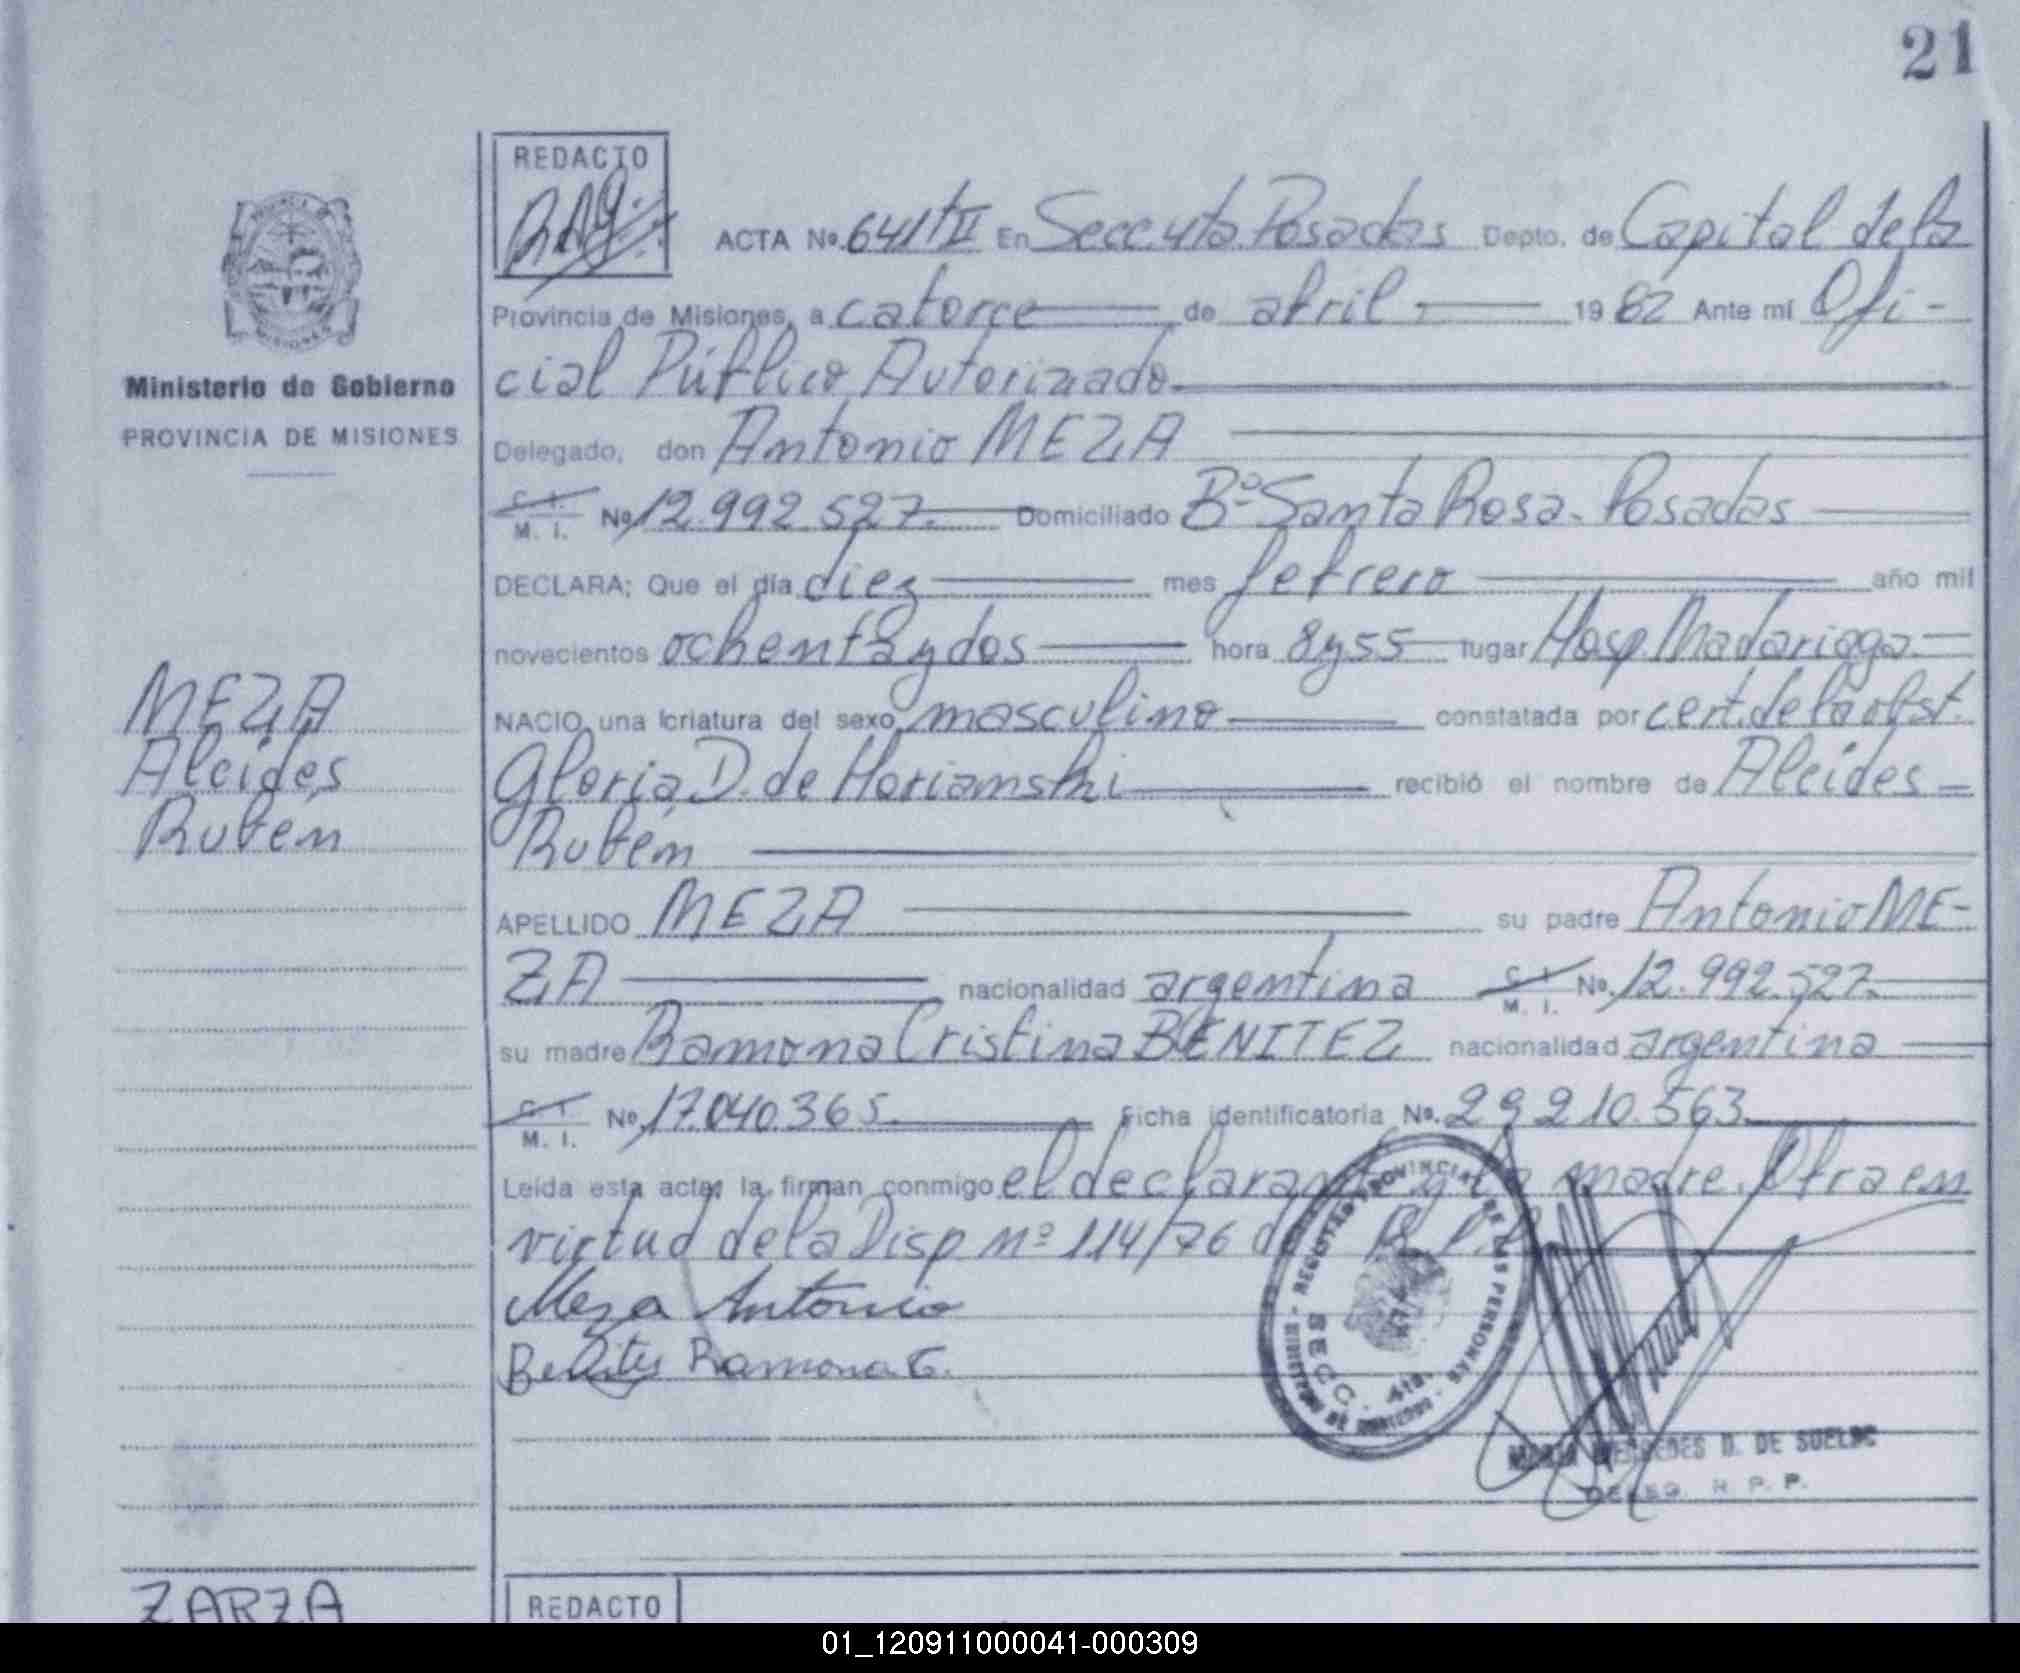 21
REDACTO
ACTA No. 641/TII En Secc. 4ta. Posadas Depto. de Capital de la
Provincia de Misiones, a catorce de abril 1982 Ante mí Ofi-
cial Público Autorizado
Delegado, don Antonio MEZA
C. I. M. I. No. 12.992.527. Domiciliado Bº Santa Rosa - Posadas
DECLARA: Que el día diez mes febrero año mil
novecientos ochenta y dos hora 8y55 lugar Hosp. Madariaga
NACIO una criatura del sexo masculino constatada por cert. de la obst.
Gloria D. de Horianski recibió el nombre de Alcides
Rubén
APELLIDO MEZA su padre Antonio ME-
ZA nacionalidad argentina C. I. M. I. No. 12.992.527.
su madre Ramona Cristina BENITEZ nacionalidad argentina
C. I. M. I. No. 17.040.365 Ficha identificatoria No. 29.210.563
Leída esta acta, la firman conmigo el declarante y la madre. Obra en
virtud de la Disp. nº 114/76
Meza Antonio
Benitez Ramona C.
Ministerio de Gobierno
PROVINCIA DE MISIONES
MEZA
Alcides
Rubén
REGISTRO PROVINCIAL DE LAS PERSONAS
SECC. 4ta.
MERCEDES D. DE SUELDO
DELEG. R. P. P.
ZARZA
REDACTO
01_120911000041-000309